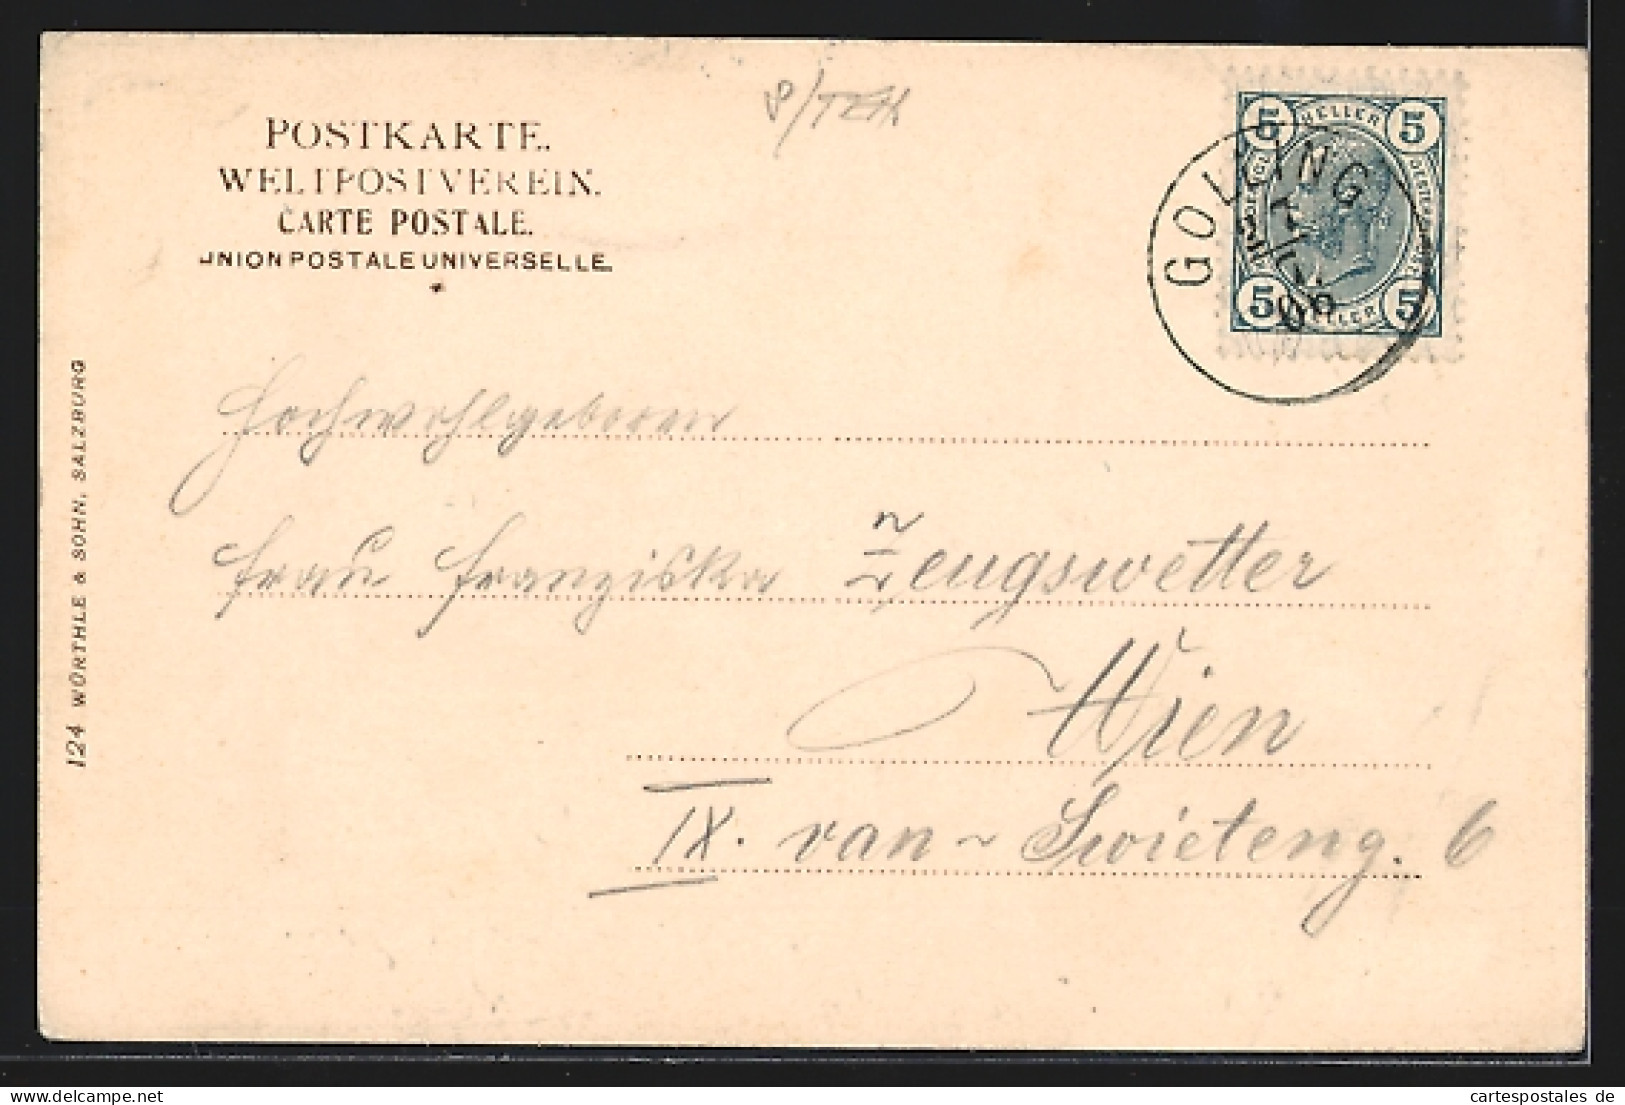 POSTKARTE.
WELTPOSTVEREIN.
CARTE POSTALE.
UNION POSTALE UNIVERSELLE.
5 HELLER 5
5 HELLER 5
GOLLING
Hochwohlgeboren
Frau Franziska Zeugswetter
Wien
IX. van-Swieteng. 6
124 WÜRTHLE & SOHN, SALZBURG
oldthing.com
cartespostales de